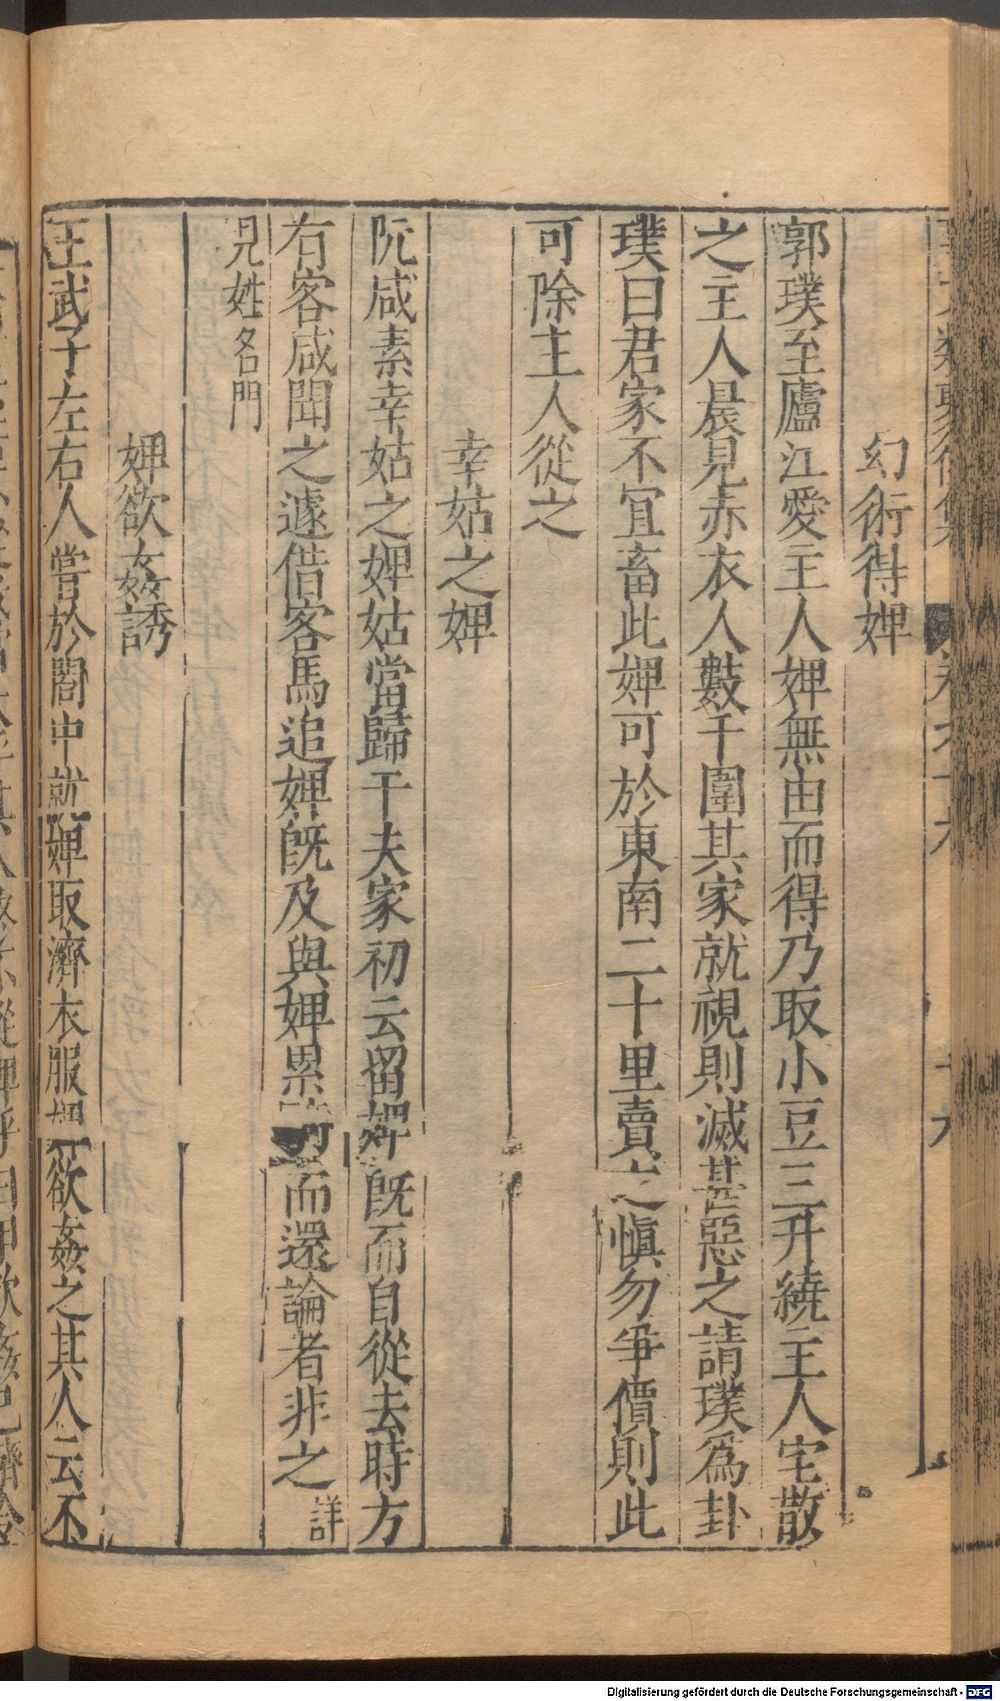 幻術得婢
郭璞至廬江愛主人婢無由而得乃取小豆三升繞主人宅散
之主人晨見赤衣人數千圍其家就視則滅甚惡之請璞爲卦
璞曰君家不宜畜此婢可於東南二十里賣之慎勿爭價則此
可除主人從之
幸姑之婢
阮咸素幸姑之婢姑當歸于夫家初云留婢旣而自從去時方
有客咸聞之遽借客馬追婢旣及與婢累騎而還論者非之詳
見姓名門
婢欲姦誘
王武子左右人嘗於閤中就婢取濟衣服婢欲姦之其人云不
Digitalisierung gefördert durch die Deutsche Forschungsgemeinschaft - DFG